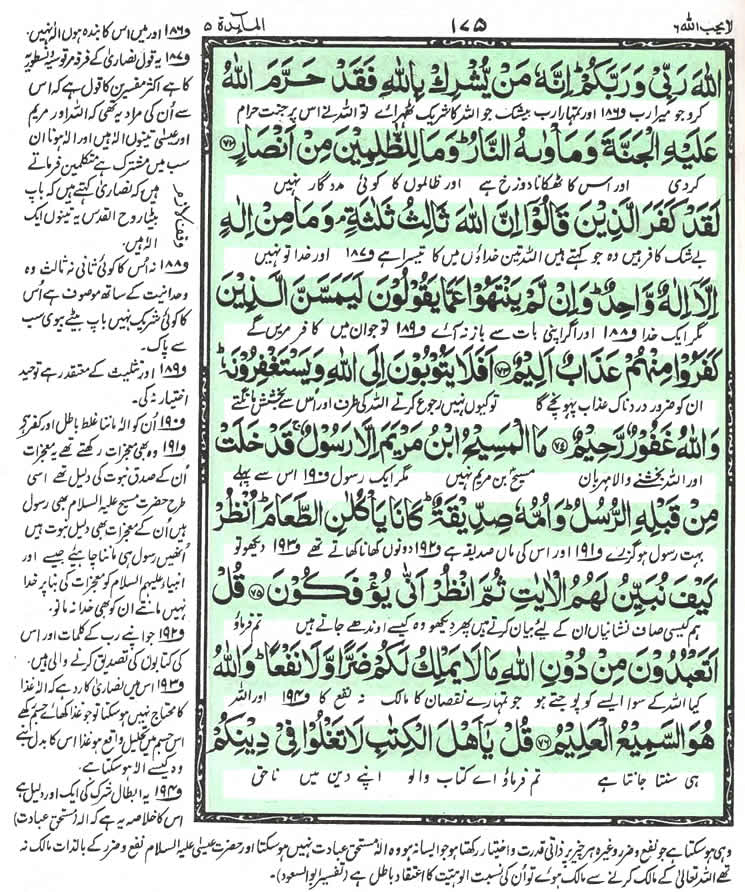 لایحب اللہ ۶
۱۷۵
المآىِٕدة ۵
اللّٰهَ رَبِّیْ وَرَبَّكُمْ ؕ اِنَّهٗ مَنْ یُّشْرِكْ بِاللّٰهِ فَقَدْ حَرَّمَ اللّٰهُ
کرو جو میرا رب و۱۸۶ اور تمہارا رب بیشک جو اللہ کا شریک ٹھہرائے تو اللہ نے اس پر جنت حرام
عَلَیْهِ الْجَنَّةَ وَمَاْوٰىهُ النَّارُ ؕ وَمَا لِلظّٰلِمِیْنَ مِنْ اَنْصَارٍ ﴿۷۲﴾
کردی اور اس کا ٹھکانا دوزخ ہے اور ظالموں کا کوئی مددگار نہیں
لَقَدْ كَفَرَ الَّذِیْنَ قَالُوْۤا اِنَّ اللّٰهَ ثَالِثُ ثَلٰثَةٍ ۘ وَمَا مِنْ اِلٰهٍ
بے شک کافر ہیں وہ جو کہتے ہیں اللہ تین خداؤں میں کا تیسرا ہے و۱۸۷ اور خدا تو نہیں
اِلَّاۤ اِلٰهٌ وَّاحِدٌ ؕ وَاِنْ لَّمْ یَنْتَهُوْا عَمَّا یَقُوْلُوْنَ لَیَمَسَّنَّ الَّذِیْنَ
مگر ایک خدا و۱۸۸ اور اگر اپنی بات سے باز نہ آئے و۱۸۹ تو جو ان میں کافر مریں گے
كَفَرُوْا مِنْهُمْ عَذَابٌ اَلِیْمٌ ﴿۷۳﴾ اَفَلَا یَتُوْبُوْنَ اِلَى اللّٰهِ وَیَسْتَغْفِرُوْنَهٗ ؕ
ان کو ضرور دردناک عذاب پہونچے گا تو کیوں نہیں رجوع کرتے اللہ کی طرف اور اس سے بخشش مانگتے
وَاللّٰهُ غَفُوْرٌ رَّحِیْمٌ ﴿۷۴﴾ مَا الْمَسِیْحُ ابْنُ مَرْیَمَ اِلَّا رَسُوْلٌ ۚ قَدْ خَلَتْ
اور اللہ بخشنے والا مہربان مسیح بن مریم نہیں مگر ایک رسول و۱۹۰ اس سے پہلے
مِنْ قَبْلِهِ الرُّسُلُ ؕ وَاُمُّهٗ صِدِّیْقَةٌ ؕ كَانَا یَاْكُلٰنِ الطَّعَامَ ؕ اُنْظُرْ
بہت رسول ہو گزرے و۱۹۱ اور اس کی ماں صدیقہ ہے و۱۹۲ دونوں کھانا کھاتے تھے و۱۹۳ دیکھو تو
كَیْفَ نُبَیِّنُ لَهُمُ الْاٰیٰتِ ثُمَّ انْظُرْ اَنّٰى یُؤْفَكُوْنَ ﴿۷۵﴾ قُلْ
ہم کیسی صاف نشانیاں ان کے لیے بیان کرتے ہیں پھر دیکھو وہ کیسے اوندھے جاتے ہیں تم فرماؤ
اَتَعْبُدُوْنَ مِنْ دُوْنِ اللّٰهِ مَا لَا یَمْلِكُ لَكُمْ ضَرًّا وَّلَا نَفْعًا ؕ وَاللّٰهُ
کیا اللہ کے سوا ایسے کو پوجتے ہو جو تمہارے نقصان کا مالک نہ نفع کا و۱۹۴ اور اللہ
هُوَ السَّمِیْعُ الْعَلِیْمُ ﴿۷۶﴾ قُلْ یٰۤاَهْلَ الْكِتٰبِ لَا تَغْلُوْا فِیْ دِیْنِكُمْ
ہی سنتا جانتا ہے تم فرماؤ اے کتاب والو اپنے دین میں ناحق
و۱۸۶ اور میں اس کا بندہ ہوں الٰہ نہیں۔
و۱۸۷ یہ قول نصاریٰ کے فرقہ مرقوسیہ ونسطوریہ
کا ہے اکثر مفسرین کا قول ہے کہ اس
سے اُن کی مراد یہ تھی کہ اللہ اور مریم
اور عیسیٰ تینوں الٰہ ہیں اور الٰہ ہونا ان
سب میں مشترک ہے متکلمین فرماتے
ہیں کہ نصاریٰ کہتے ہیں کہ باپ
بیٹا روح القدس یہ تینوں ایک
الٰہ ہیں۔
وقف لازم
و۱۸۸ نہ اُس کا کوئی ثانی نہ ثالث وہ
وحدانیت کے ساتھ موصوف ہے اُس
کا کوئی شریک نہیں باپ بیٹے بیوی سب
سے پاک۔
و۱۸۹ اور تثلیث کے معتقد رہے توحید
اختیار نہ کی۔
و۱۹۰ اُن کو الٰہ ماننا غلط باطل اور کفر ہے
و۱۹۱ وہ بھی معجزات رکھتے تھے یہ معجزات
اُن کے صدق نبوت کی دلیل تھے اسی
طرح حضرت مسیح علیہ السلام بھی رسول
ہیں اُن کے معجزات بھی دلیل نبوت ہیں
اُنھیں رسول ہی ماننا چاہیئے جیسے اور
انبیاء علیہم السلام کو معجزات کی بنا پر خدا
نہیں مانتے اُن کو بھی خدا نہ مانو۔
و۱۹۲ جو اپنے رب کے کلمات اور اس
کی کتابوں کی تصدیق کرنے والی ہیں۔
و۱۹۳ اس میں نصاریٰ کا رد ہے کہ الٰہ غذا
کا محتاج نہیں ہوسکتا تو جو غذا کھائے جسم رکھے
اس جسم میں تحلیل واقع ہو غذا اس کا بدل بنے
وہ کیسے الٰہ ہوسکتا ہے۔
و۱۹۴ یہ ابطال شرک کی ایک اور دلیل ہے
اس کا خلاصہ یہ ہے کہ الٰہ (مستحق عبادت)
وہی ہوسکتا ہے جو نفع و ضرر وغیرہ ہر چیز پر ذاتی قدرت و اختیار رکھتا ہو جو ایسا نہ ہو وہ الٰہ مستحق عبادت نہیں ہوسکتا اور حضرت عیسیٰ علیہ السلام نفع و ضرر کے بالذات مالک نہ
تھے اللہ تعالیٰ کے مالک کرنے سے مالک ہوئے تو اُن کی نسبت الوہیت کا اعتقاد باطل ہے (تفسیر ابو السعود)۔